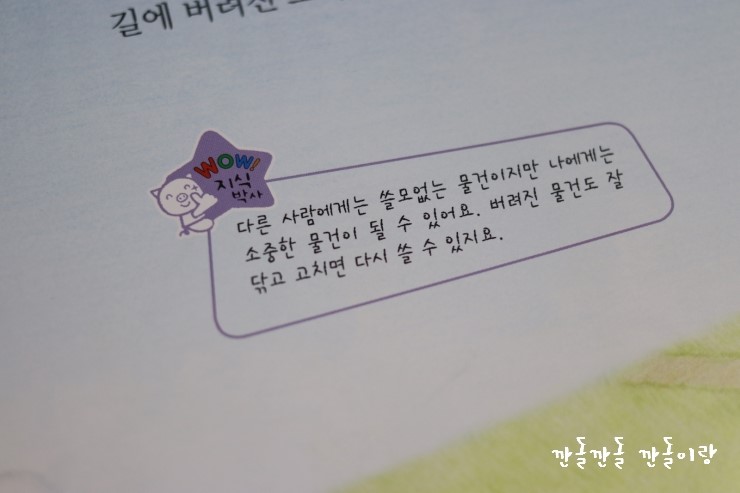 길에 버려진
WOW!
지식
박사
다른 사람에게는 쓸모없는 물건이지만 나에게는
소중한 물건이 될 수 있어요. 버려진 물건도 잘
닦고 고치면 다시 쓸 수 있지요.
깐돌깐돌 깐돌이랑